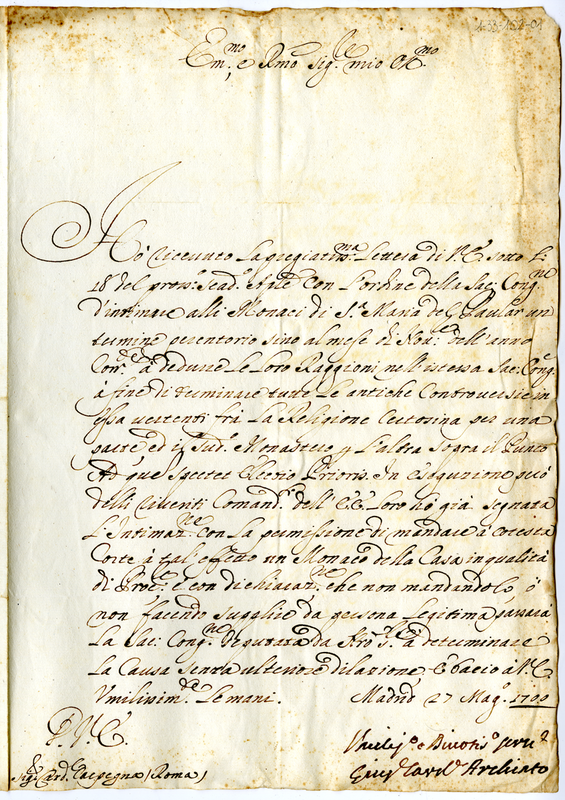 Em.mo e Rmo Sig.re mio Oss.mo
Hò ricevuto la pregiatiss.ma lettera di V.E. sotto li
18 del pross.o scad.o Aple con l'ordine della Sac: Cong.ne
d'intimare alli Monaci di S.ta Maria de el Paular un
termine perentorio sino al mese di Nov.re dell'anno
Corr.te à dedurre le loro Raggioni nell'istessa Sac: Cong.e
à fine di terminare tutte le antiche Controversie in
essa vertenti frà la Religione Certosina per una
parte ed il Sud.o Monastero p l'altra sopra il Punto
Ad que spectet Electio Prioris. In esequzione però
delli riveriti Comand.i dell'EE. Loro hò già segnata
l'Intimaz.ne con la permissione di mandare à cotesta
Corte à tal effetto un Monaco della Casa in qualità
di Proc.re e con dichiaraz.ne che non mandandolo, ò
non facendo supplire da persona legitima passarà
la Sac: Cong.ne deputata da Nro S.re à determinare
la Causa senza ulteriore dilazione, e bacio à V.E.
Umilissim.te le mani. Madrid 27 Mag.o 1700
D.V.E.
Sig.r Card. Carpegna (Roma)
Umiliss.o e Divotis.o Serv.e
Gius.e Arciv.o Archinto